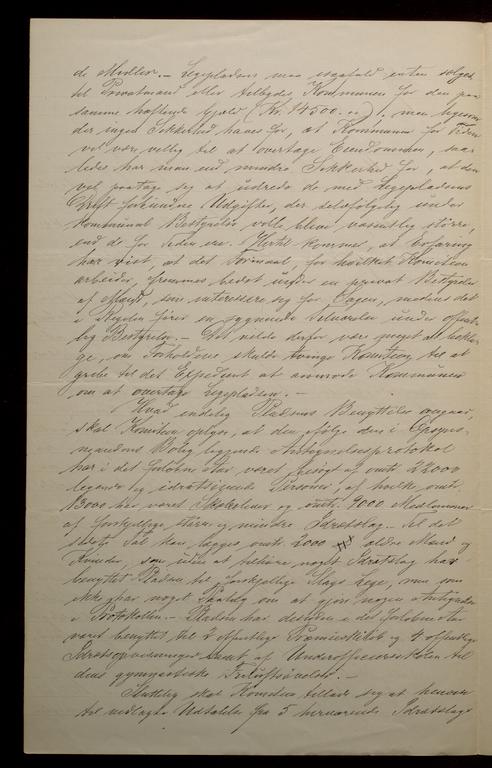 de Midler. — Legepladsen maa isaafald enten sælges
til Privatmand eller tilbydes Kommunen for den paa
samme hæftende Gjæld (Kr. 14500.00), men ligesom
der ingen Sikkerhed haves for, at Kommunen for Tiden
vil være villig til at overtage Eiendommen, saa
ledes har man end mindre Sikkerhed for, at den
vil paatage sig at udrede de med Legepladsens
Drift forbundne Udgifter, der selvfølgelig under
kommunal Bestyrelse vilde blive væsentlig større,
end de for Tiden ere. Hertil kommer, at Erfaring
har vist, at det Formaal, for hvilket Komiteen
arbeider, fremmes bedst under en privat Bestyrelse
af Mænd, som interessere sig for Sagen, medens det
i Regelen fører en Tilværelse under offent
lig Bestyrelse. — Det vilde derfor være meget at bekla
ge, om Forholdene skulde tvinge Komiteen til at
gribe til det Expedient at anmode Kommunen
om at overtage Legepladsen. —
Hvad endelig Pladsens Benyttelse angaar,
skal Komiteen oplyse, at den ifølge den i Opsyns-
mandens Bolig liggende Antegnelsesprotokol
har i det forløbne Aar været besøgt af omtr. 28000
legende og idrætsøvende Personer, af hvilke omtr.
13000 har været Skoleelever og omtr. 9000 Medlemmer
af forskjellige større og mindre Idrætslag. Til det
Tal kan lægges omtr. 2000 ældre Mænd og
Kvinder, som uden at tilhøre noget Idrætslag har
benyttet Pladsen til forskjellige Slags Lege, men som
ikke har noget om at gjøre nogen Antegnelse
i Protokollen. — Pladsen har desuden i det forløbne Aar
været benyttet til 2 offentlige og 4 offentlige
Idrætsopvisninger samt af Underofficersskolen til
dens gymnastiske Friluftsøvelser. —
Sluttelig skal Komiteen tillade sig at henvise
til vedlagte Udtalelse fra 5 herværende Idrætslag